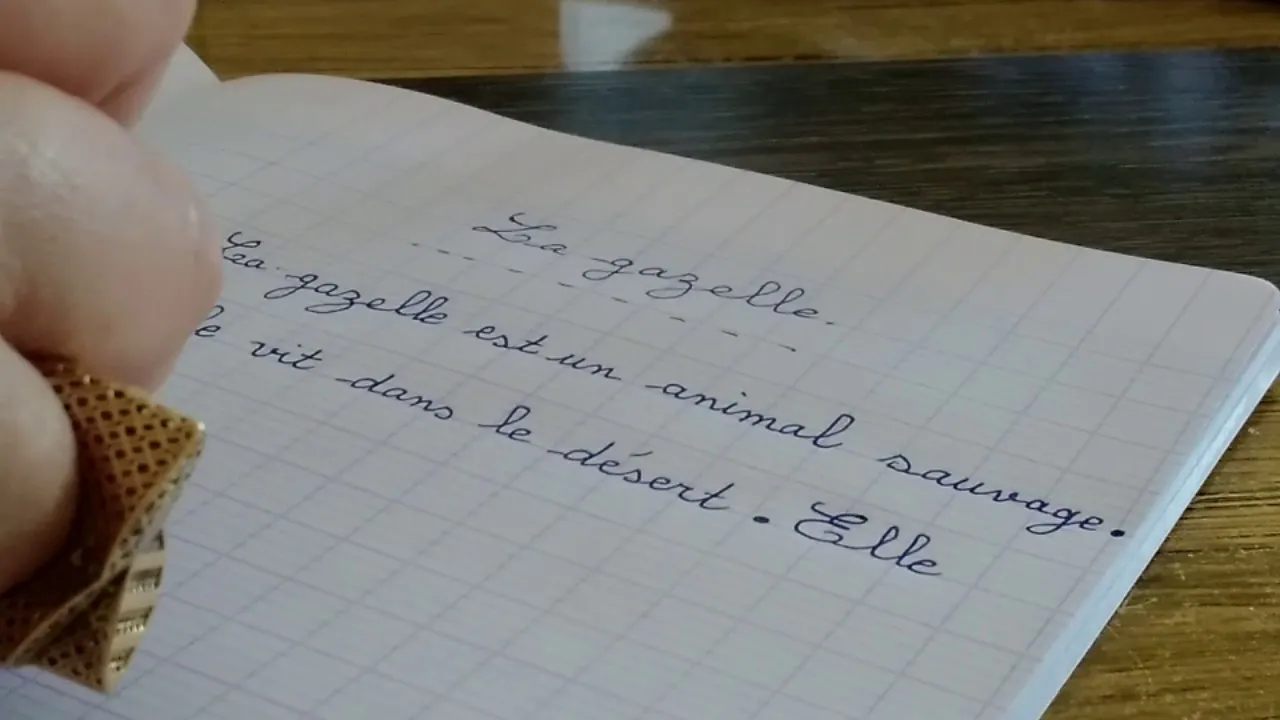 La gazelle.
La gazelle est un animal sauvage.
le vit dans le désert. Elle